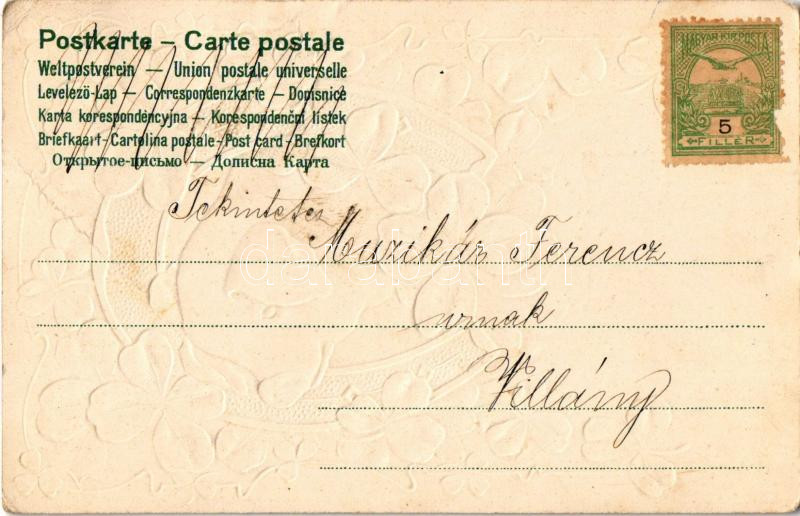 Postkarte – Carte postale
Weltpostverein — Union postale universelle
Levelező-Lap — Correspondenzkarte — Dopisnice
Karta korespondencyjna — Korespondenční lístek
Briefkaart – Cartolina postale – Post card – Brefkort
Открытое-письмо — Дописна Карта
MAGYAR KIR. POSTA
5
FILLÉR
Tekintetes
Muzikár Ferencz
urnak
Villány
darabanth